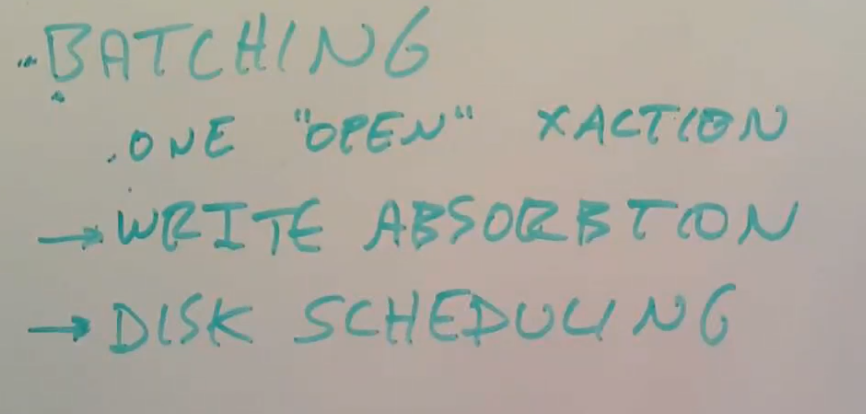 BATCHING
. ONE "OPEN" XACTION
→ WRITE ABSORBTION
→ DISK SCHEDULING